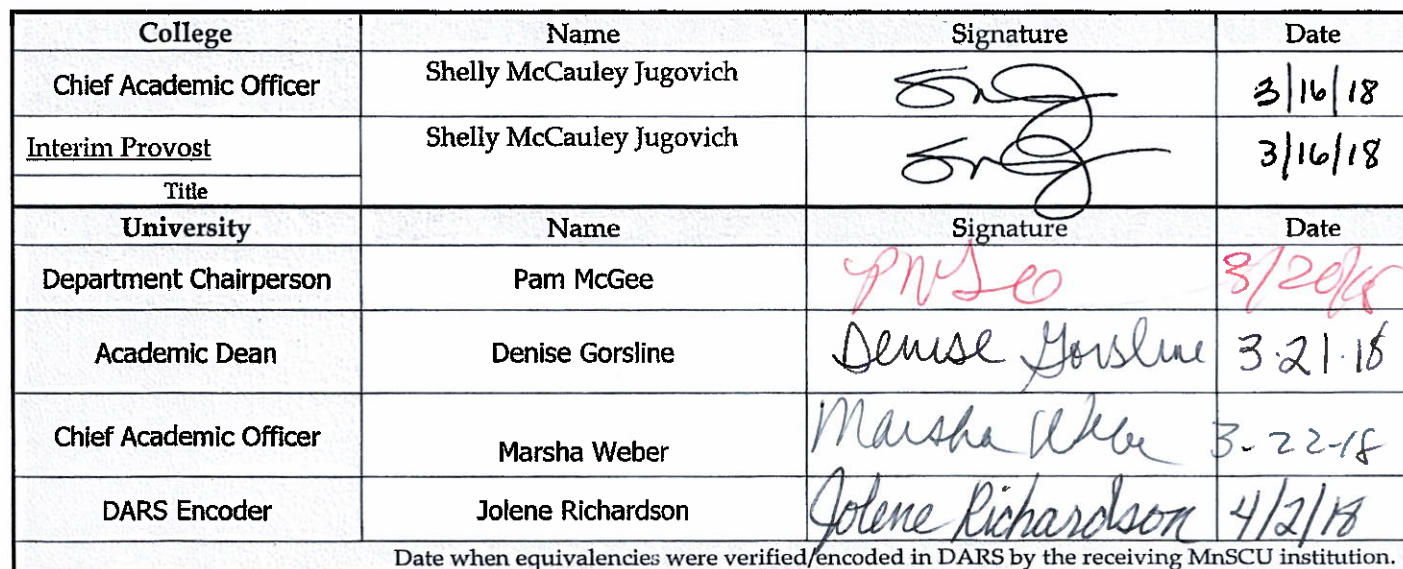 College Name Signature Date
Chief Academic Officer Shelly McCauley Jugovich 3/16/18
Interim Provost Shelly McCauley Jugovich 3/16/18
Title
University Name Signature Date
Department Chairperson Pam McGee 3/20/18
Academic Dean Denise Gorsline Denise Gorsline 3.21.18
Chief Academic Officer Marsha Weber Marsha Weber 3-22-18
DARS Encoder Jolene Richardson Jolene Richardson 4/2/18
Date when equivalencies were verified/encoded in DARS by the receiving MnSCU institution.